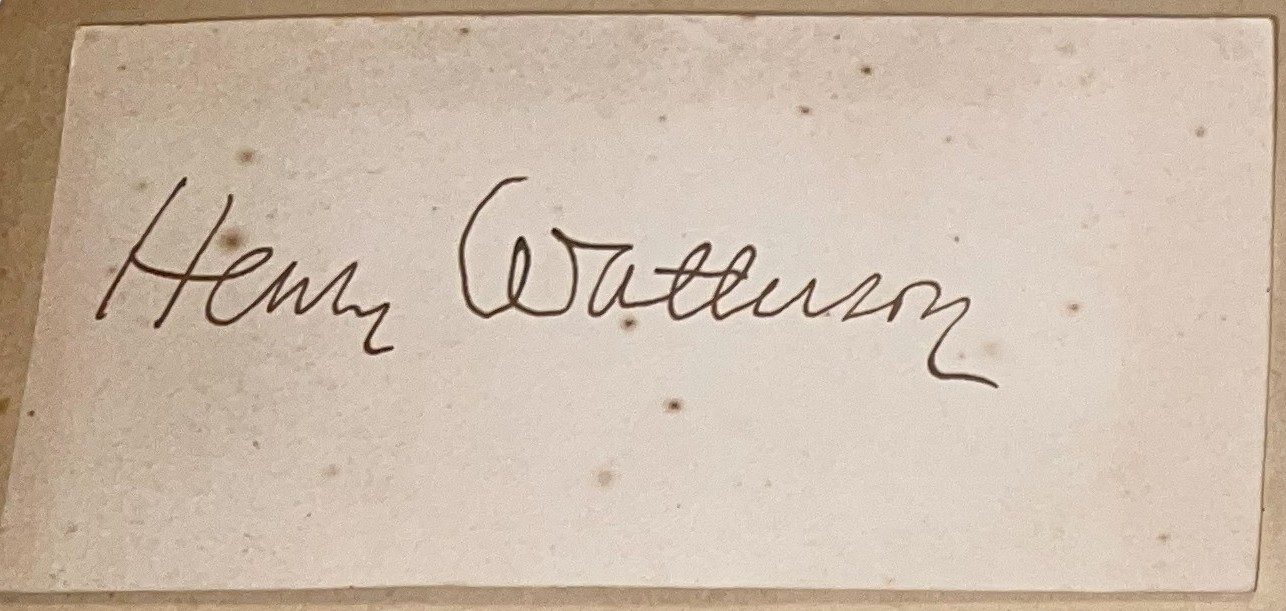 Henry Watterson